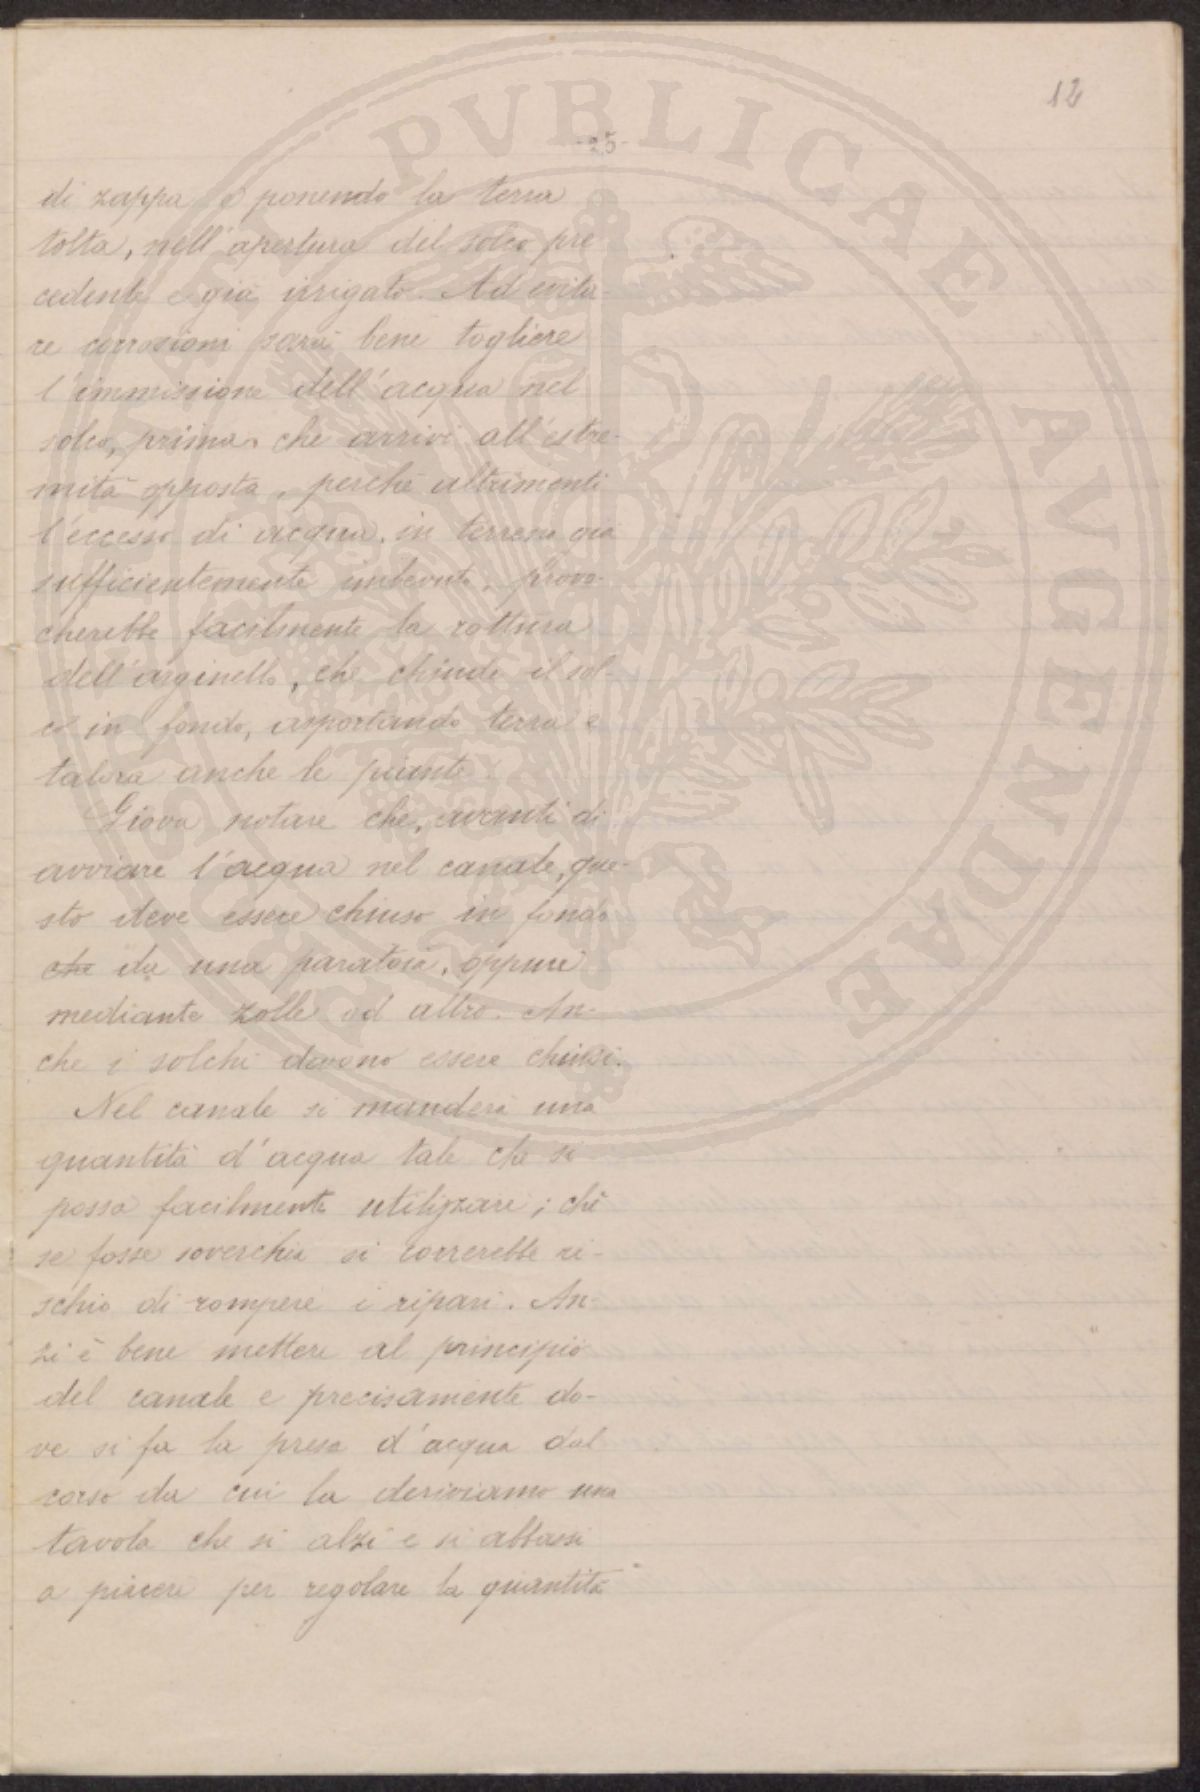 12
-25-
di zappa e ponendo la terra
tolta, nell'apertura del solco pre
cedente e già irrigato. Ad evita-
re corrosioni sarà bene togliere
l'immissione dell'acqua nel
solco, prima che arrivi all'estre-
mità opposta, perchè altrimenti
l'eccesso di acqua, in terreno già
sufficientemente imbevuto, provo-
cherebbe facilmente la rottura
dell'arginello, che chiude il sol-
co in fondo, asportando terra e
talora anche le piante.
Giova notare che, avanti di
avviare l'acqua nel canale, que-
sto deve essere chiuso in fondo
che da una paratoia, oppure
mediante zolle od altro. An-
che i solchi devono essere chiusi.
Nel canale si manderà una
quantità d'acqua tale che si
possa facilmente utilizzare; chè
se fosse soverchia si correrebbe ri-
schio di rompere i ripari. An-
zi è bene mettere al principio
del canale e precisamente do-
ve si fa la presa d'acqua dal
corso da cui la deriviamo una
tavola che si alzi e si abbassi
a piacere per regolare la quantità
PUBLICAE AUGENDAE